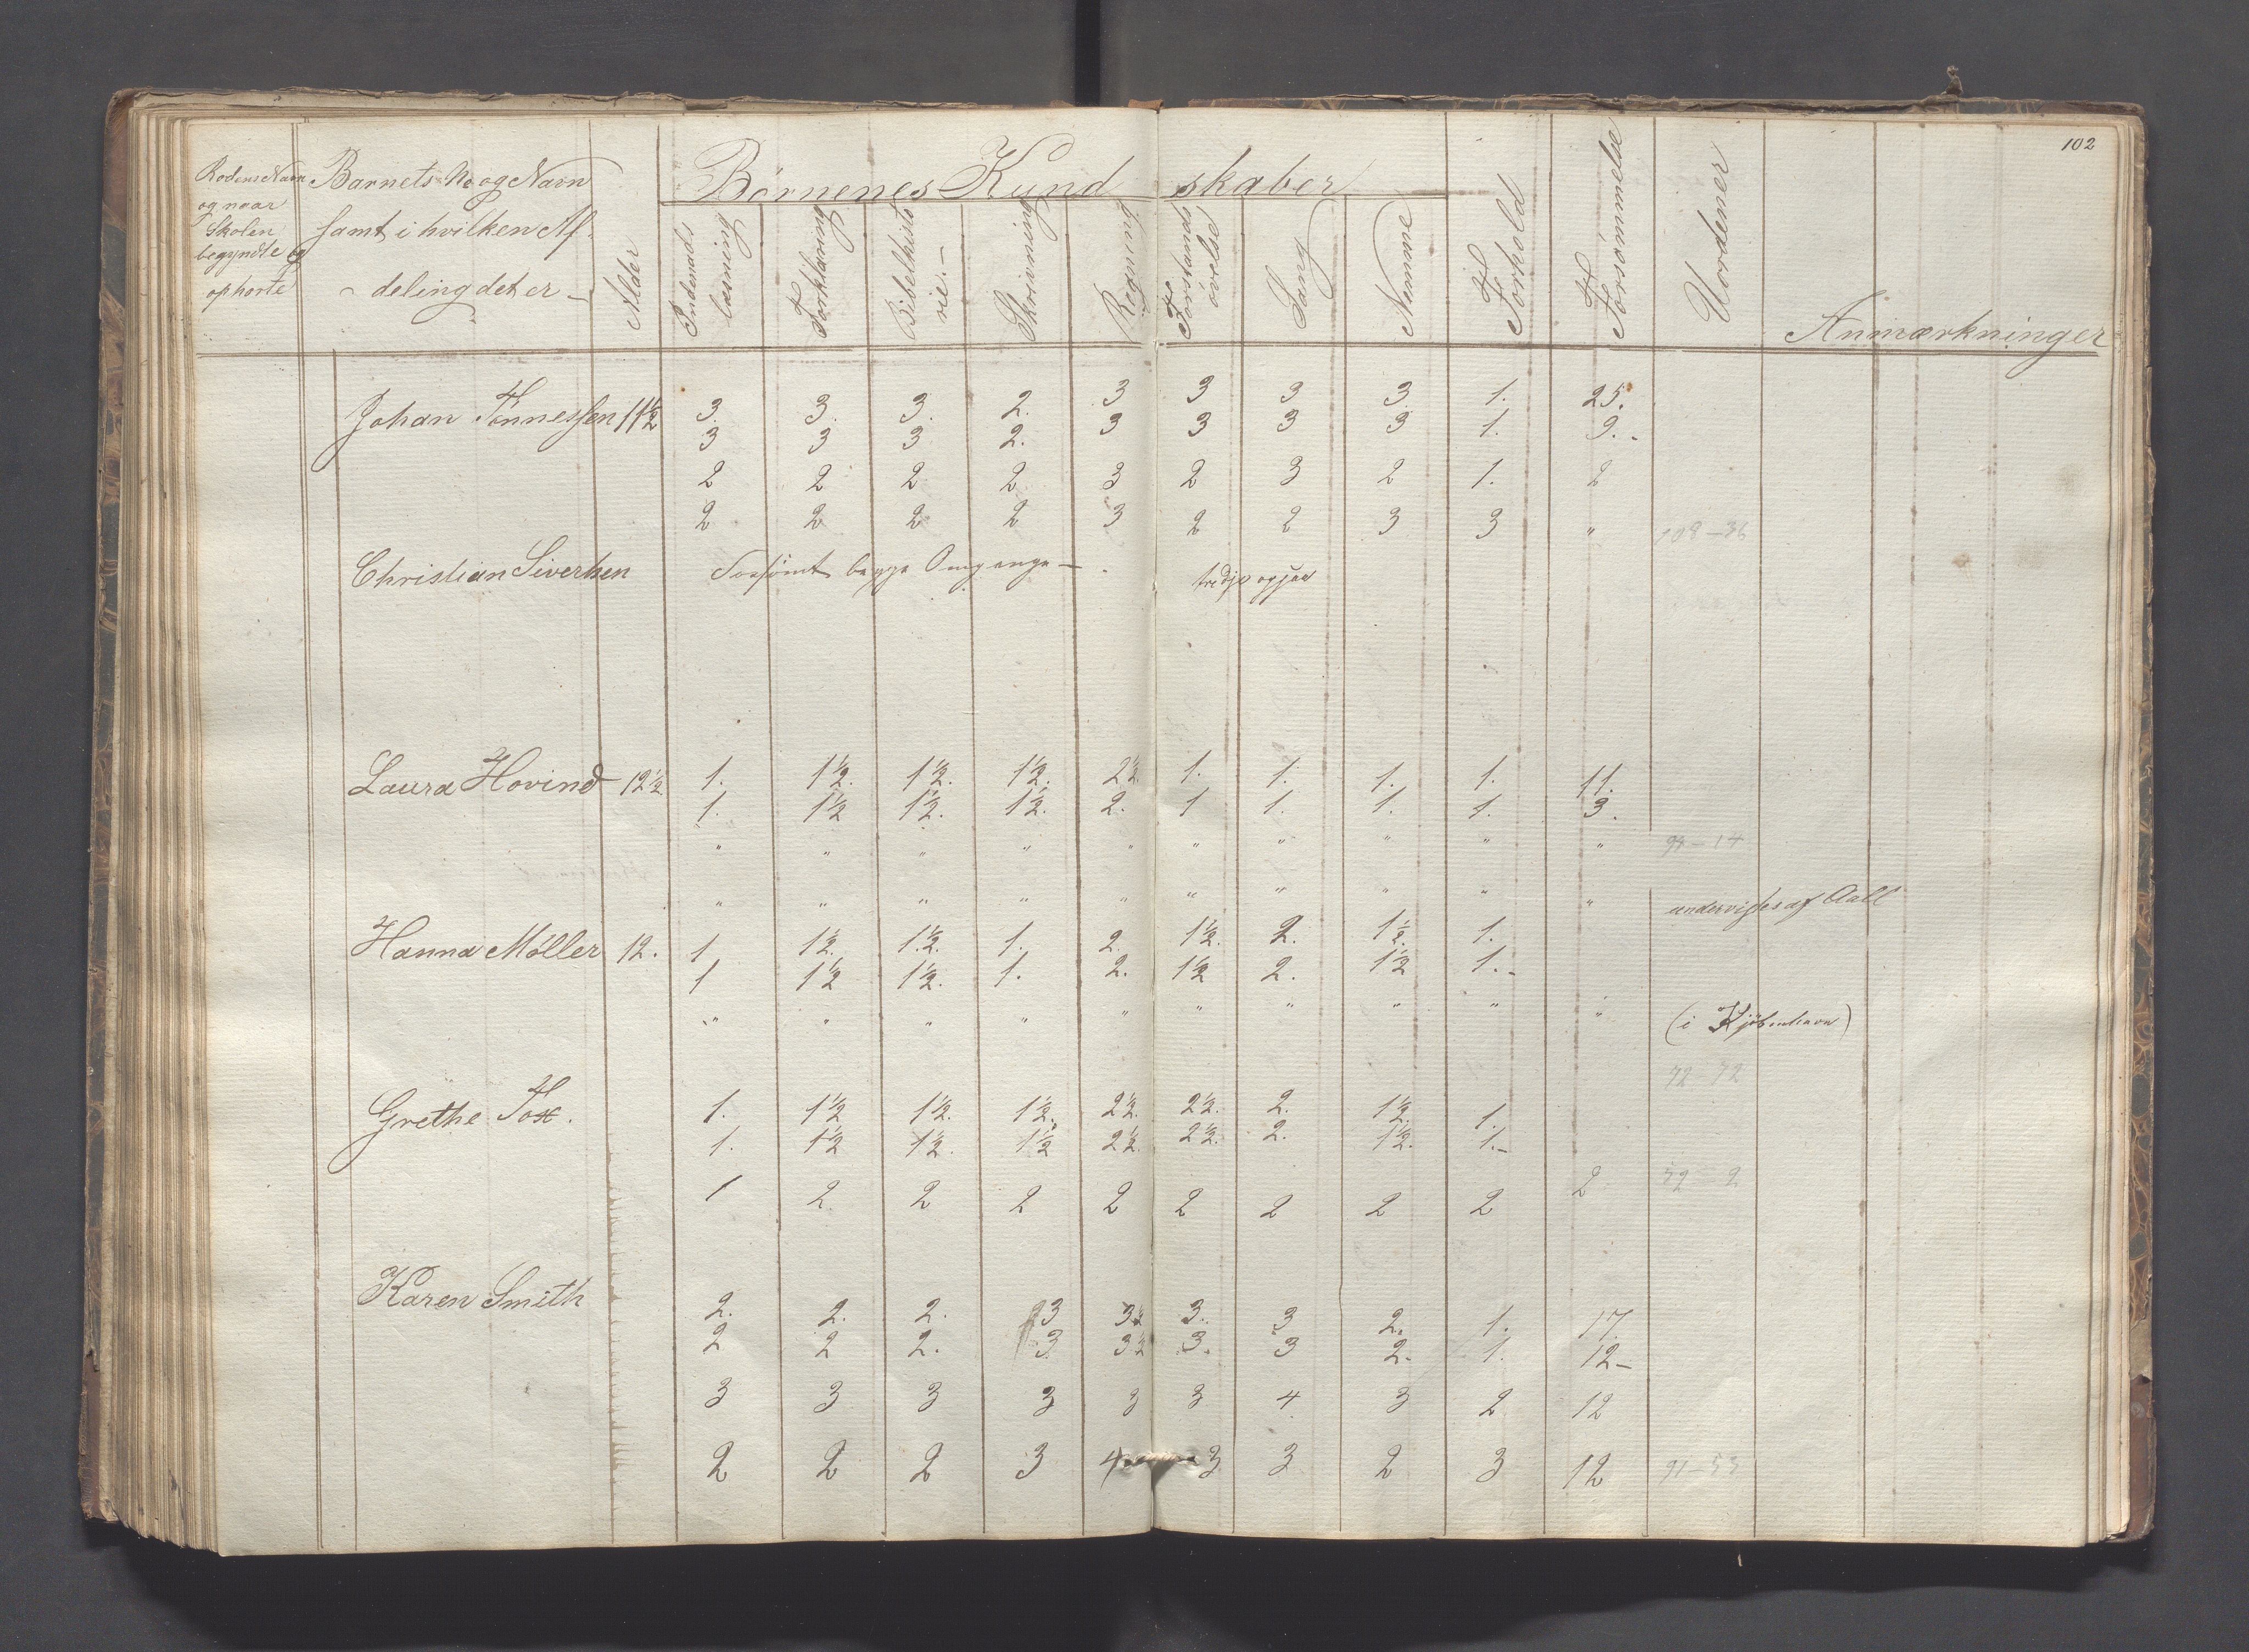 102
Rodens Navn
og naar
Skolen
begyndte og
ophørte
Barnets No og Navn
samt i hvilken Af-
deling det er
Alder
Børnenes Kundskaber
Indenads
læsning
Forklaring
Bibelhisto
rie.
Skrivning
Regning
Forstands
øvelse
Sang
Nemme
Forhold
Forsømmelse
Uordener
Anmærkninger
Johan Tønnessen 11½ 3. 3. 3. 2. 3 3 3 3 1. 25.
3 3 3 2. 3 3 3 3 1. 9.
2 2 2 2 3 2 3 2 1. 2
2 2 2 2 3 2 2 3 3 " 108-36
Christian Sivertsen Forsömt begge Omgange tredje ogsaa
Laura Hovind 12½ 1. 1½. 1½. 1½. 2½. 1. 1. 1. 1. 11.
1. 1½ 1½. 1½. 2. 1 1. 1. 1. 3.
" " " " " " " " " " 94-14
" " " " " " " " " " undervises af Aall
Hanna Møller 12. 1 1½. 1.½. 1. 2. 1½. 2. 1½. 1.
1 1½ 1½. 1. 2. 1½ 2. 1½ 1.
" " " " " " " " " " (i Kjöbenhavn)
72-72
Grethe Fox. 1. 1½ 1½. 1½. 2½. 2½. 2. 1½. 1.
1. 1½ 1½. 1½ 2½. 2½. 2. 1½. 1.
1 2. 2 2 2 2 2 2 2 2 52 2
Karen Smith 2. 2. 2. 3 3½ 3. 3 2. 1. 17
2 2 2. 3 3½ 3. 3 2. 1. 12
3 3 3 3 3 3 4 3 2 12
2 2 2 3 4 3 3 2 3 12 91-53